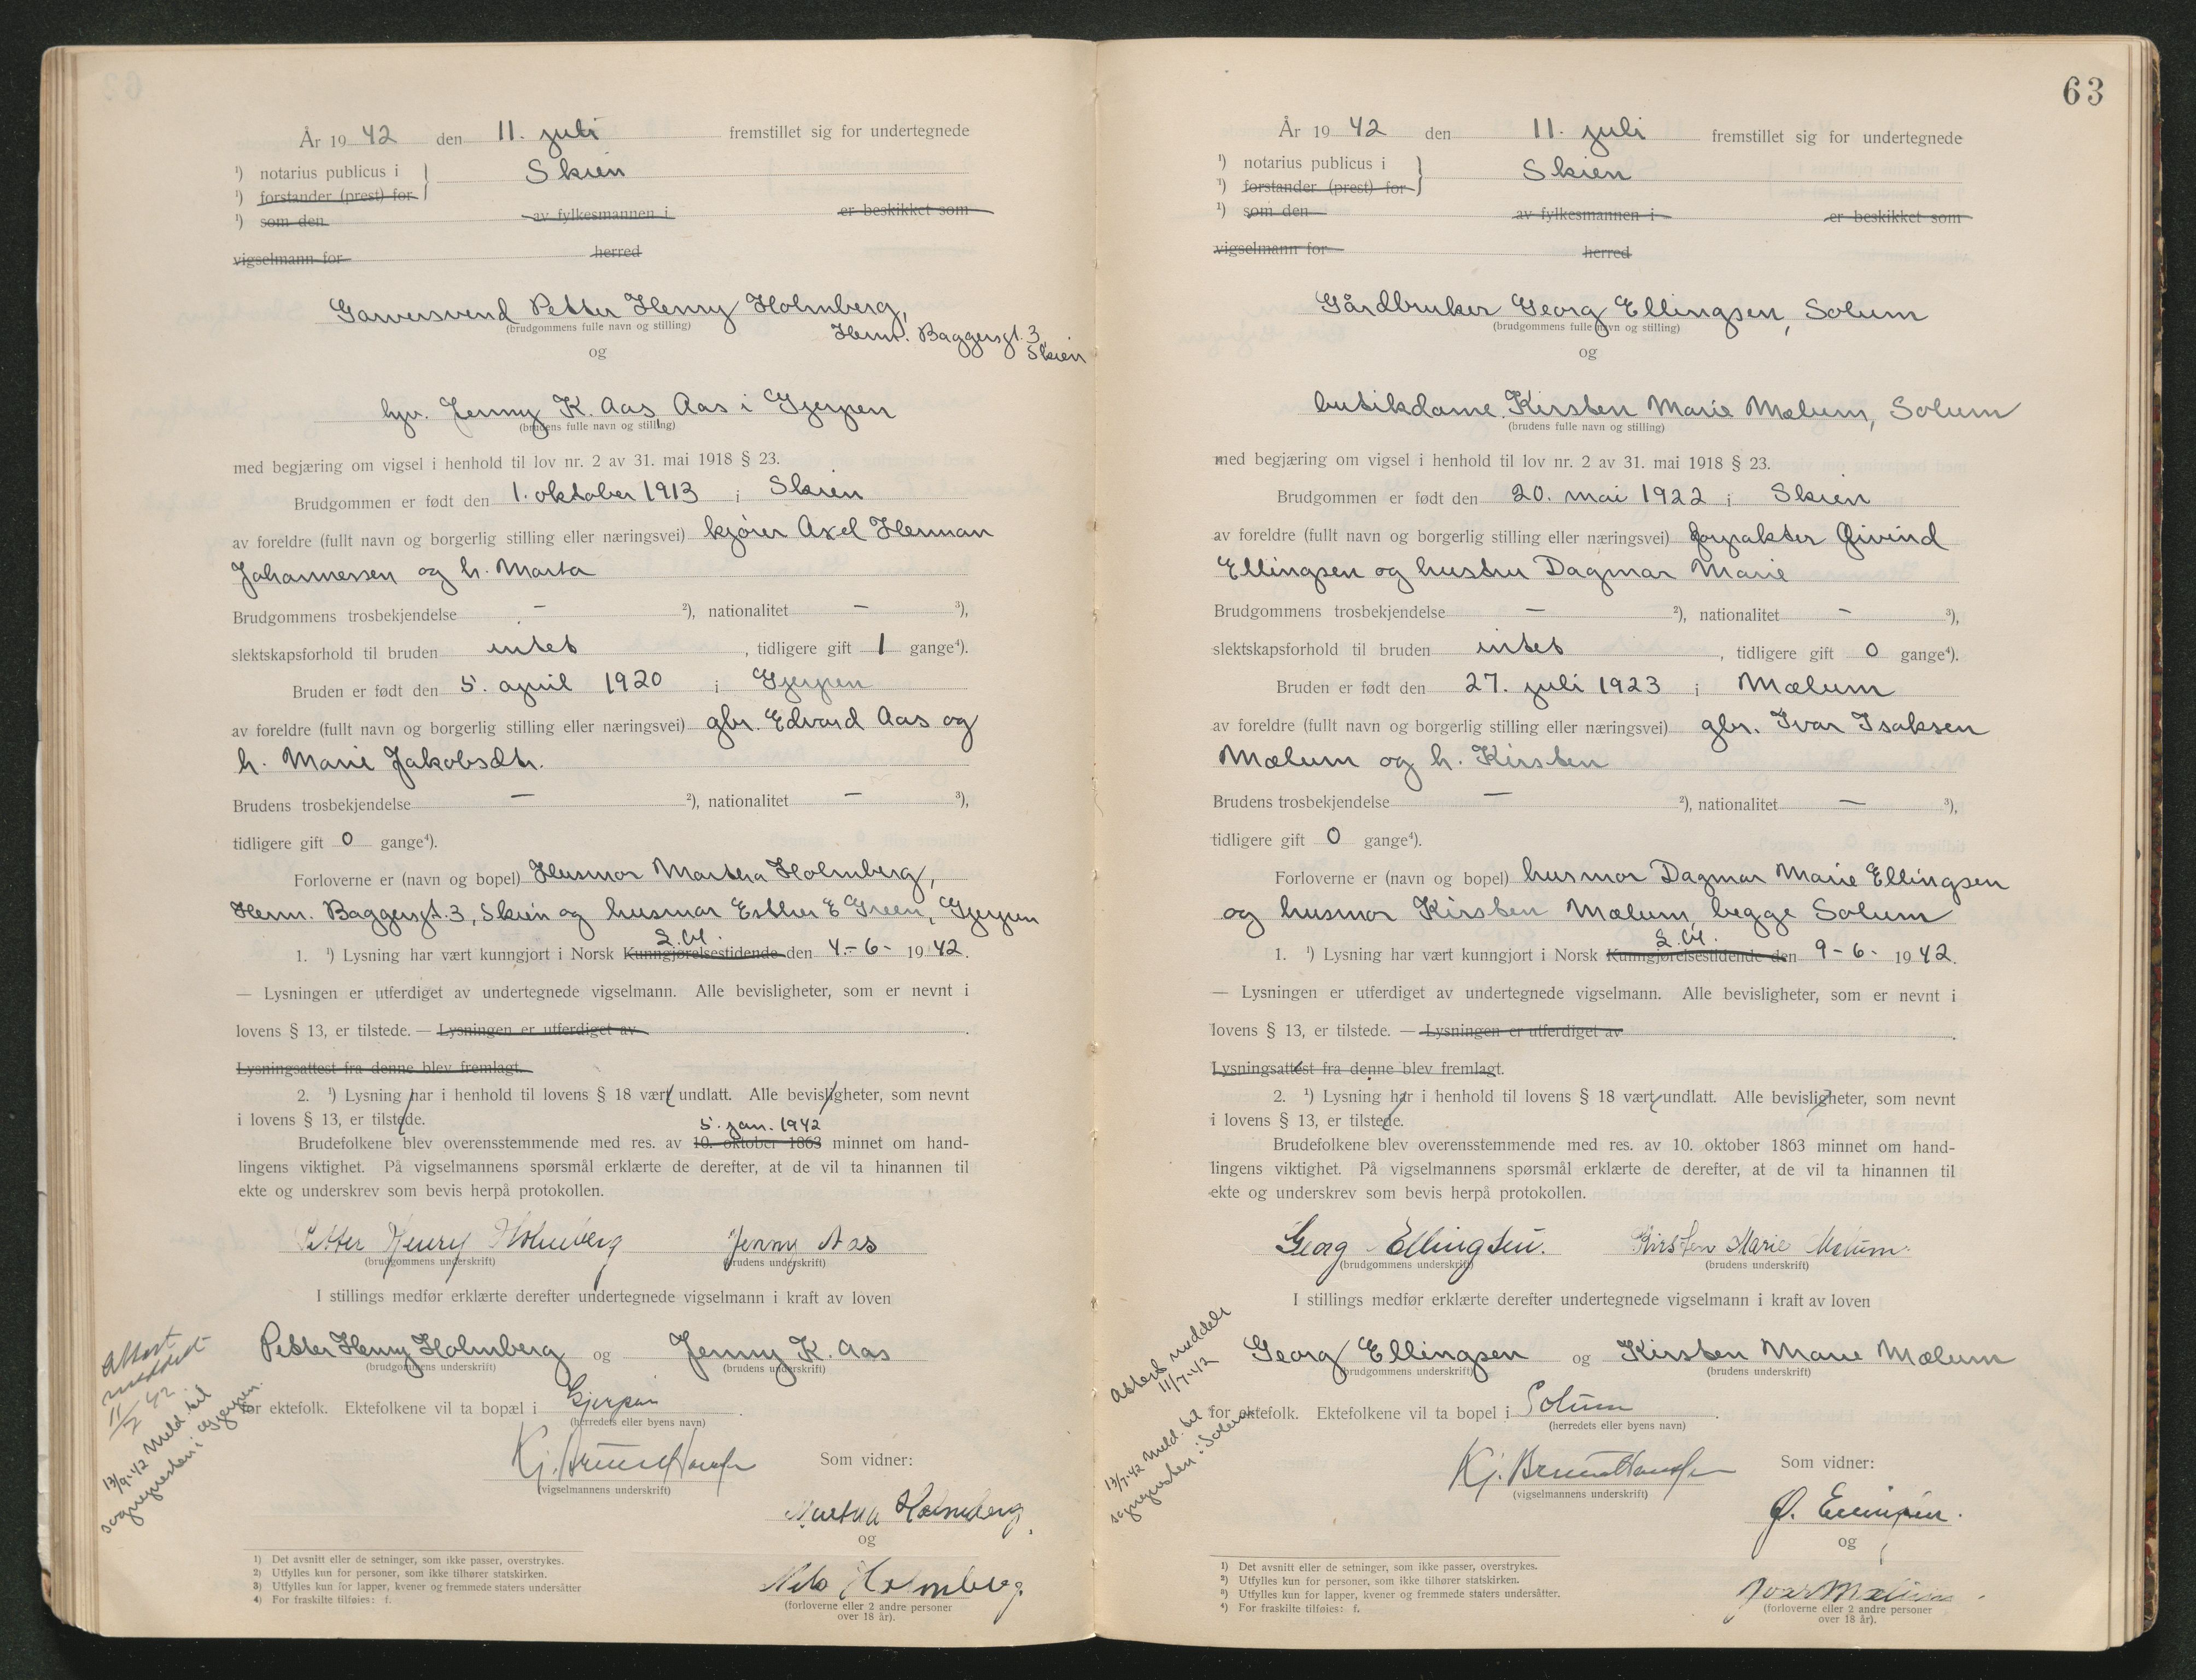 År 1942 den 11. juli fremstillet sig for undertegnede
¹) notarius publicus i } Skien
¹) forstander (prest) for
¹) som den av fylkesmannen i er beskikket som
vigselmann for herred
Garversvend Petter Henry Holmberg,
(brudgommens fulle navn og stilling)
Herm. Baggersgt. 3,
Skien
og
hjv. Jenny K. Aas Aas i Gjerpen
(brudens fulle navn og stilling)
med begjæring om vigsel i henhold til lov nr. 2 av 31. mai 1918 § 23.
Brudgommen er født den 1. oktober 1913 i Skien
av foreldre (fullt navn og borgerlig stilling eller næringsvei) kjører Axel Herman
Johannessen og h. Marta
Brudgommens trosbekjendelse – ²), nationalitet – ³),
slektskapsforhold til bruden intet, tidligere gift 1 gange⁴).
Bruden er født den 5. april 1920 i Gjerpen
av foreldre (fullt navn og borgerlig stilling eller næringsvei) gbr. Edvard Aas og
h. Marie Jakobsdtr.
Brudens trosbekjendelse – ²), nationalitet – ³),
tidligere gift 0 gange⁴).
Forloverne er (navn og bopel) Husmor Martha Holmberg,
Herm. Baggersgt. 3, Skien og husmor Esther E Green, Gjerpen
1. ¹) Lysning har vært kunngjort i Norsk Kunngjørelsestidende den 4.-6- 1942.
— Lysningen er utferdiget av undertegnede vigselmann. Alle bevisligheter, som er nevnt i
lovens § 13, er tilstede. — Lysningen er utferdiget av .
Lysningsattest fra denne blev fremlagt.
2. ¹) Lysning har i henhold til lovens § 18 vært undlatt. Alle bevisligheter, som nevnt
i lovens § 13, er tilstede.
5. jan. 1942
Brudefolkene blev overensstemmende med res. av 10. oktober 1863 minnet om hand-
lingens viktighet. På vigselmannens spørsmål erklærte de derefter, at de vil ta hinannen til
ekte og underskrev som bevis herpå protokollen.
Petter Henry Holmberg Jenny Aas
(brudgommens underskrift) (brudens underskrift)
I stillings medfør erklærte derefter undertegnede vigselmann i kraft av loven
Petter Henry Holmberg og Jenny K. Aas
(brudgommens underskrift) (brudens underskrift)
for ektefolk. Ektefolkene vil ta bopæl i Gjerpen.
(herredets eller byens navn)
Kj. Bruun Hansen
(vigselmannens underskrift)
Som vidner:
Martha Holmberg.
og
Nils Holmberg.
(forloverne eller 2 andre personer
over 18 år).
Attest
meddelt
11/7 42.
13/9-42 Meld. til
sognepresten i Gjerpen.
1) Det avsnitt eller de setninger, som ikke passer, overstrykes.
2) Utfylles kun for personer, som ikke tilhører statskirken.
3) Utfylles kun for lapper, kvener og fremmede staters undersåtter
4) For fraskilte tilføies: f.
63
År 1942 den 11. juli fremstillet sig for undertegnede
¹) notarius publicus i } Skien
¹) forstander (prest) for
¹) som den av fylkesmannen i er beskikket som
vigselmann for herred
Gårdbruker Georg Ellingsen, Solum
(brudgommens fulle navn og stilling)
og
butikdame Kirsten Marie Mælum, Solum
(brudens fulle navn og stilling)
med begjæring om vigsel i henhold til lov nr. 2 av 31. mai 1918 § 23.
Brudgommen er født den 20. mai 1922 i Skien
av foreldre (fullt navn og borgerlig stilling eller næringsvei) forpakter Øivind
Ellingsen og hustru Dagmar Marie
Brudgommens trosbekjendelse – ²), nationalitet – ³),
slektskapsforhold til bruden intet, tidligere gift 0 gange⁴).
Bruden er født den 27. juli 1923 i Mælum
av foreldre (fullt navn og borgerlig stilling eller næringsvei) gbr. Ivar Isaksen
Mælum og h. Kirsten
Brudens trosbekjendelse – ²), nationalitet – ³),
tidligere gift 0 gange⁴).
Forloverne er (navn og bopel) husmor Dagmar Marie Ellingsen
og husmor Kirsten Mælum, begge Solum
1. ¹) Lysning har vært kunngjort i Norsk Kunngjørelsestidende den 9-6- 1942.
— Lysningen er utferdiget av undertegnede vigselmann. Alle bevisligheter, som er nevnt i
lovens § 13, er tilstede. — Lysningen er utferdiget av .
Lysningsattest fra denne blev fremlagt.
2. ¹) Lysning har i henhold til lovens § 18 vært undlatt. Alle bevisligheter, som nevnt
i lovens § 13, er tilstede.
Brudefolkene blev overensstemmende med res. av 10. oktober 1863 minnet om hand-
lingens viktighet. På vigselmannens spørsmål erklærte de derefter, at de vil ta hinannen til
ekte og underskrev som bevis herpå protokollen.
Georg Ellingsen. Kirsten Marie Mælum.
(brudgommens underskrift) (brudens underskrift)
I stillings medfør erklærte derefter undertegnede vigselmann i kraft av loven
Georg Ellingsen og Kirsten Marie Mælum
(brudgommens underskrift) (brudens underskrift)
for ektefolk. Ektefolkene vil ta bopel i Solum.
(herredets eller byens navn)
Kj. Bruun Hansen
(vigselmannens underskrift)
Som vidner:
Ø. Ellingsen.
og
Ivar Mælum
(forloverne eller 2 andre personer
over 18 år).
Attest meddelt
11/7-42
13/7-42 Meld. til
sognepresten i Solum
1) Det avsnitt eller de setninger, som ikke passer, overstrykes.
2) Utfylles kun for personer, som ikke tilhører statskirken.
3) Utfylles kun for lapper, kvener og fremmede staters undersåtter.
4) For fraskilte tilføies: f.